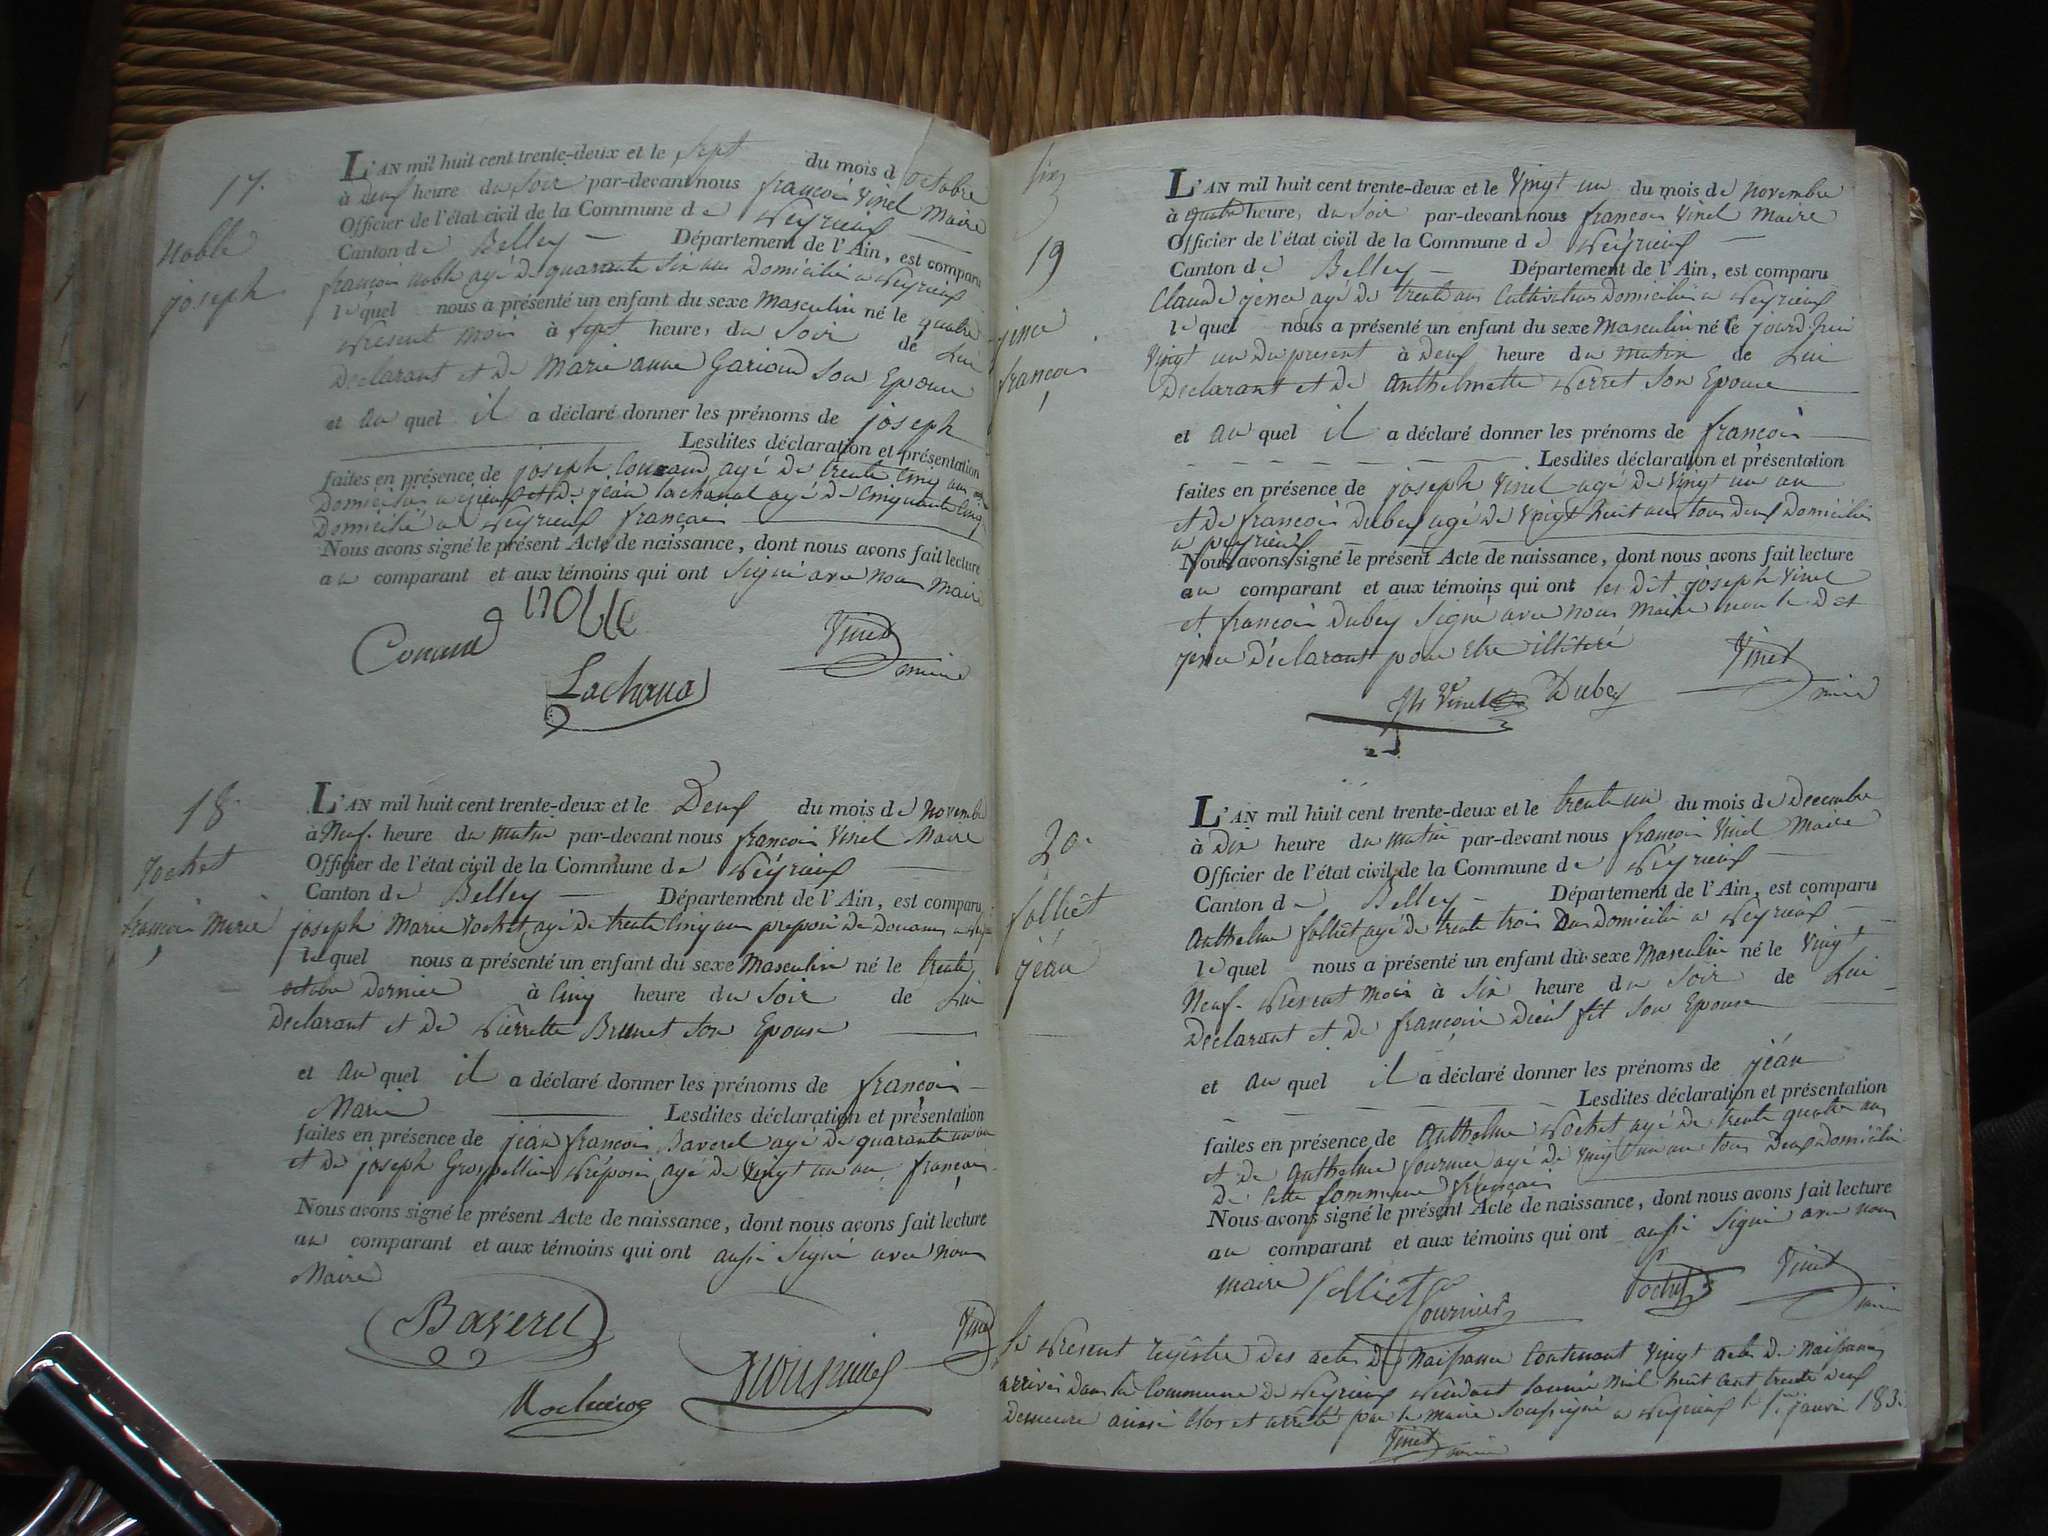 17.
Noble
joseph
L'AN mil huit cent trente-deux et le sept du mois d'octobre
à deux heure du soir par-devant nous françois Vinel Maire
Officier de l'état civil de la Commune de Peyrieux
Canton de Belley Département de l'Ain, est comparu
françois Noble agé de quarante six ans Domicilié a Peyrieux
lequel nous a présenté un enfant du sexe Masculin né le quatre
Present mois à sept heure, du Soir de Lui
Déclarant et de Marie anne Gariond Son Epouse
et auquel il a déclaré donner les prénoms de joseph
Lesdites déclaration et présentation
faites en présence de joseph Conand agé de trente cinq ans
Domicilié a et de jean Lachanal agé de cinquante cinq
Domicilié a Peyrieux français
Nous avons signé le présent Acte de naissance, dont nous avons fait lecture
au comparant et aux témoins qui ont signé avec nous Maire
Conand noble Vinel maire
Lachana
18.
rochet
françois Marie
L'AN mil huit cent trente-deux et le Deux du mois de Novembre
à Neuf heure du matin par-devant nous françois Vinel Maire
Officier de l'état civil de la Commune de Peyrieux
Canton de Belley Département de l'Ain, est comparu
joseph Marie rochet agé de trente cinq ans preposé de Douanes a
lequel nous a présenté un enfant du sexe Masculin né le trente
octobre Dernier à cinq heure du Soir de Lui
Déclarant et de Pierrette Brunet Son Epouse
et auquel il a déclaré donner les prénoms de françois
Marie Lesdites déclaration et présentation
faites en présence de jean françois Baverel agé de quarante un an
et de joseph Préposé agé de vingt un an français
Nous avons signé le présent Acte de naissance, dont nous avons fait lecture
au comparant et aux témoins qui ont aussi signé avec nous
Maire
Baverel
Vinel
19
jince
françois
L'AN mil huit cent trente-deux et le Vingt un du mois de Novembre
à quatre heure, du Soir par-devant nous françois Vinel Maire
Officier de l'état civil de la Commune de Peyrieux
Canton de Belley Département de l'Ain, est comparu
Claude jince agé de trente ans Cultivateur Domicilié a Peyrieux
lequel nous a présenté un enfant du sexe Masculin né le jourd'hui
Vingt un du present à deux heure du matin de Lui
Déclarant et de Anthelmette Perret Son Epouse
et auquel il a déclaré donner les prénoms de françois
Lesdites déclaration et présentation
faites en présence de joseph Vinel agé de Vingt un an
et de françois Dubey agé de vingt huit ans tous deux Domiciliés
a peyrieux
Nous avons signé le présent Acte de naissance, dont nous avons fait lecture
au comparant et aux témoins qui ont les dit joseph Vinel
et françois Dubey signé avec nous Maire non le dit
jince Déclarant pour etre illitéré
Vinel maire
Jh Vinel Dubey
20.
folliet
jean
L'AN mil huit cent trente-deux et le trente un du mois de Decembre
à Dix heure du matin par-devant nous françois Vinel Maire
Officier de l'état civil de la Commune de Peyrieux
Canton de Belley Département de l'Ain, est comparu
Anthelme folliet agé de trente trois ans Domicilié a Peyrieux
lequel nous a présenté un enfant du sexe Masculin né le Vingt
Neuf Present mois à Six heure du Soir de Lui
Déclarant et de françoise Son Epouse
et auquel il a déclaré donner les prénoms de jean
Lesdites déclaration et présentation
faites en présence de Anthelme rochet agé de trente quatre ans
et de Anthelme fournier agé de ans tous Deux domiciliés
de cette Commune français
Nous avons signé le présent Acte de naissance, dont nous avons fait lecture
au comparant et aux témoins qui ont aussi signé avec nous
maire folliet fournier rochet Vinel maire
le Present registre des actes de Naissance contenant vingt actes de Naissances
arrivés dans la Commune de Peyrieux Pendant l'année mil huit cent trente deux
demeure ainsi clos et arrêté par le maire soussigné a Peyrieux le 1er janvier 183
Vinel maire